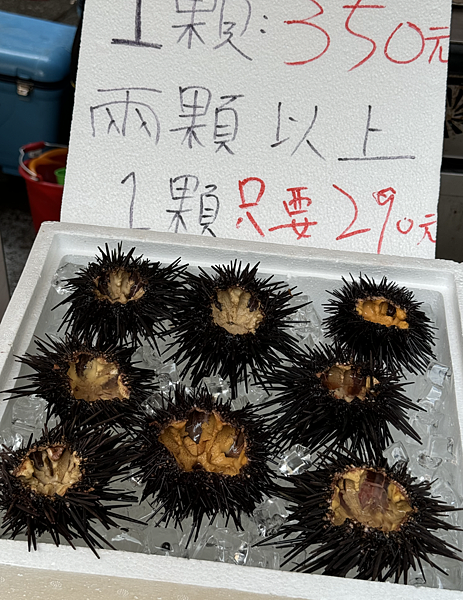 1顆:350元
兩顆以上
1顆只要290元